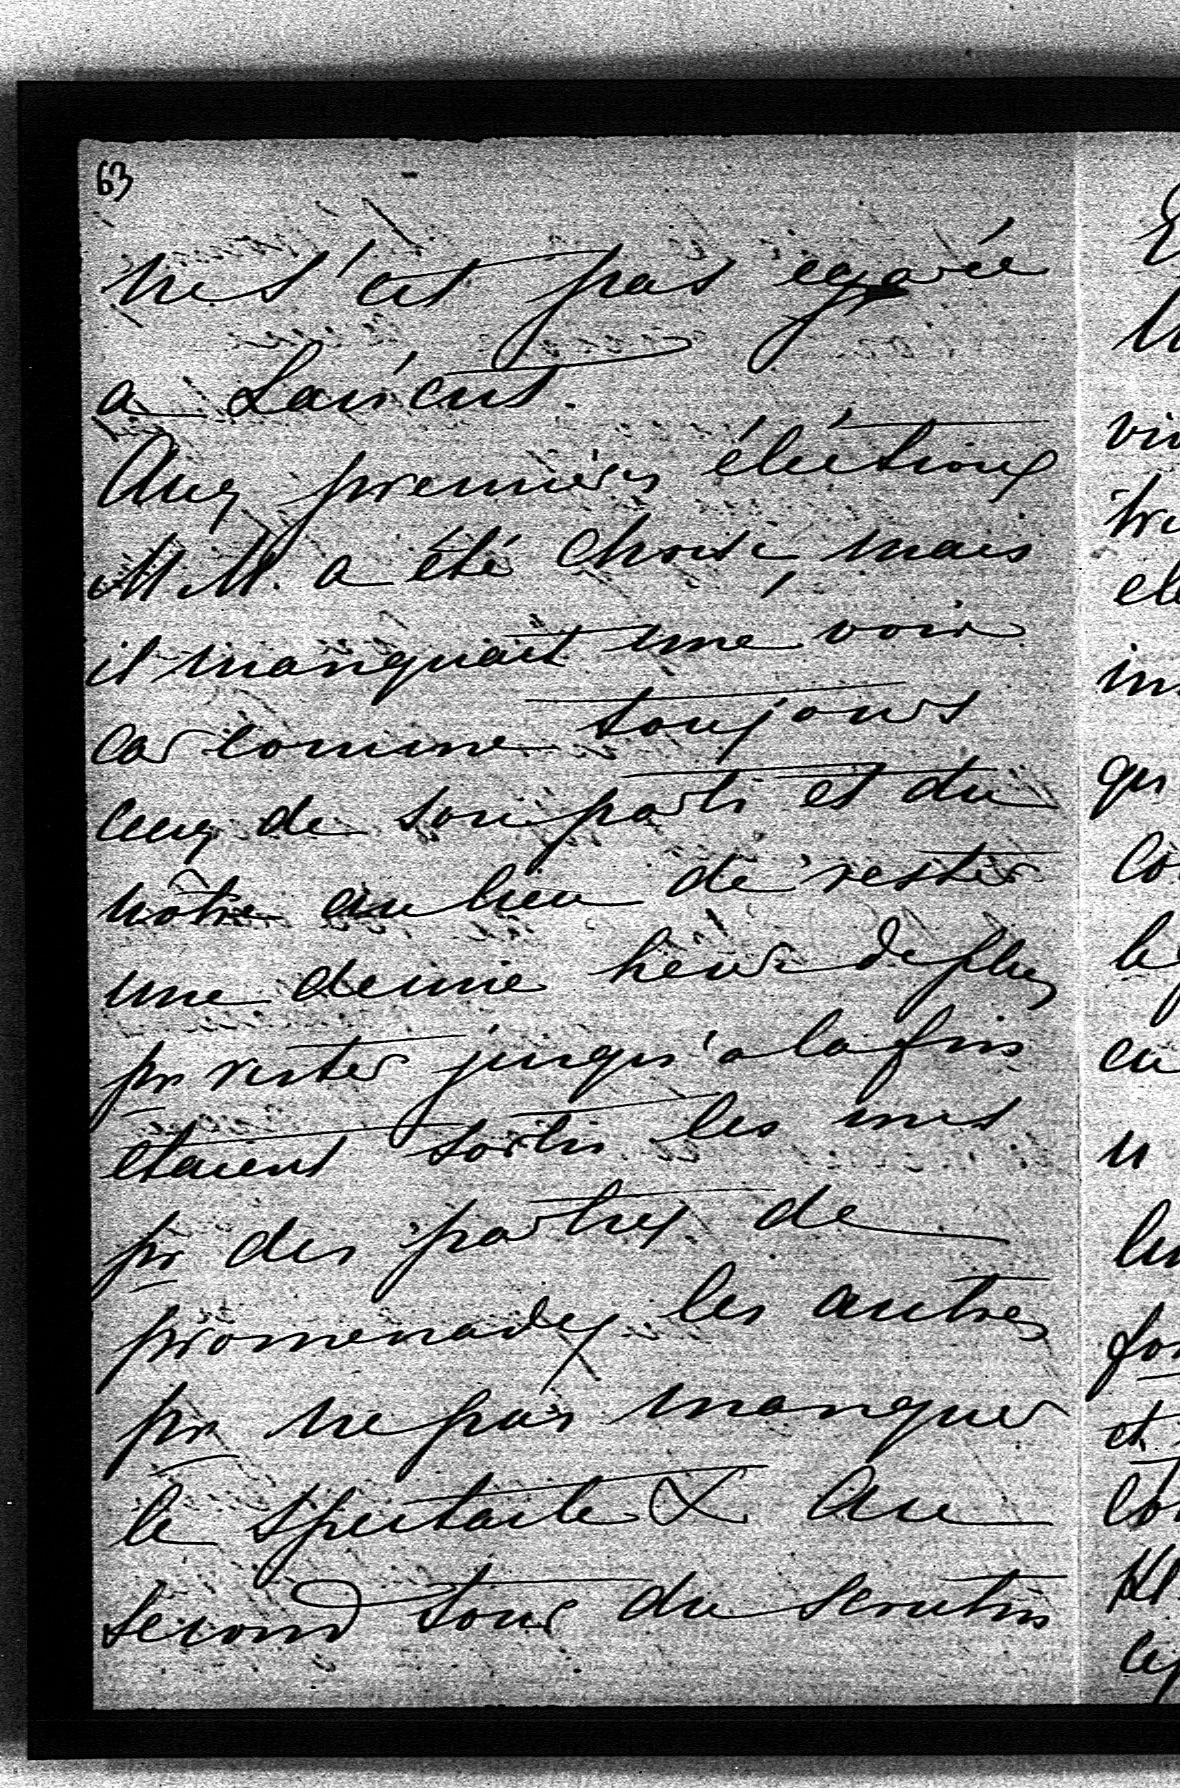 63
ne s'est pas egarée
a
Aux premières éléctions
M. M. a été choisi mais
il manquait une voix
car comme toujours
ceux de son parti et du
nôtre au lieu de rester
une demie heure de plus
pr rester jusqu'a la fin
etaient sortis les uns
pr des parties de
promenades les autres
pr ne pas manquer
le spectacle & Au
second tour du scrutin